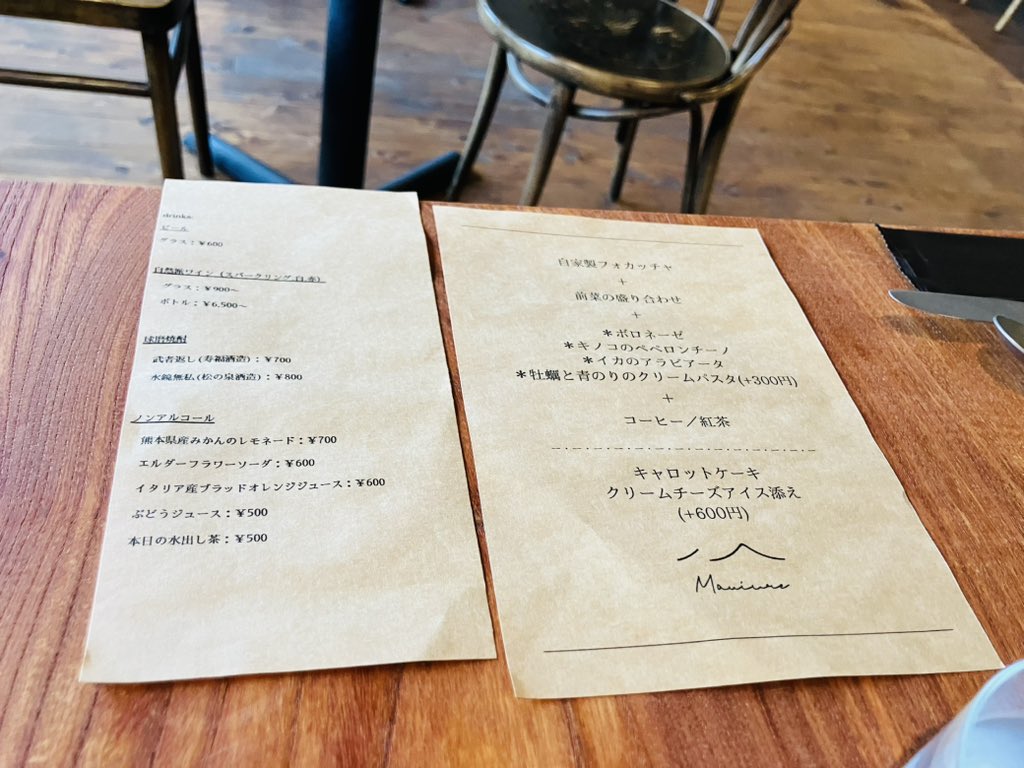 drinks
ビール
グラス：¥600
自然派ワイン（スパークリング,白,赤）
グラス：¥900～
ボトル：¥6,500～
球磨焼酎
武者返し(寿福酒造)：¥700
水鏡無私(松の泉酒造)：¥800
ノンアルコール
熊本県産みかんのレモネード：¥700
エルダーフラワーソーダ：¥600
イタリア産ブラッドオレンジジュース：¥600
ぶどうジュース：¥500
本日の水出し茶：¥500
自家製フォカッチャ
+
前菜の盛り合わせ
+
＊ボロネーゼ
＊キノコのペペロンチーノ
＊イカのアラビアータ
＊牡蠣と青のりのクリームパスタ(+300円)
+
コーヒー／紅茶
キャロットケーキ
クリームチーズアイス添え
(+600円)